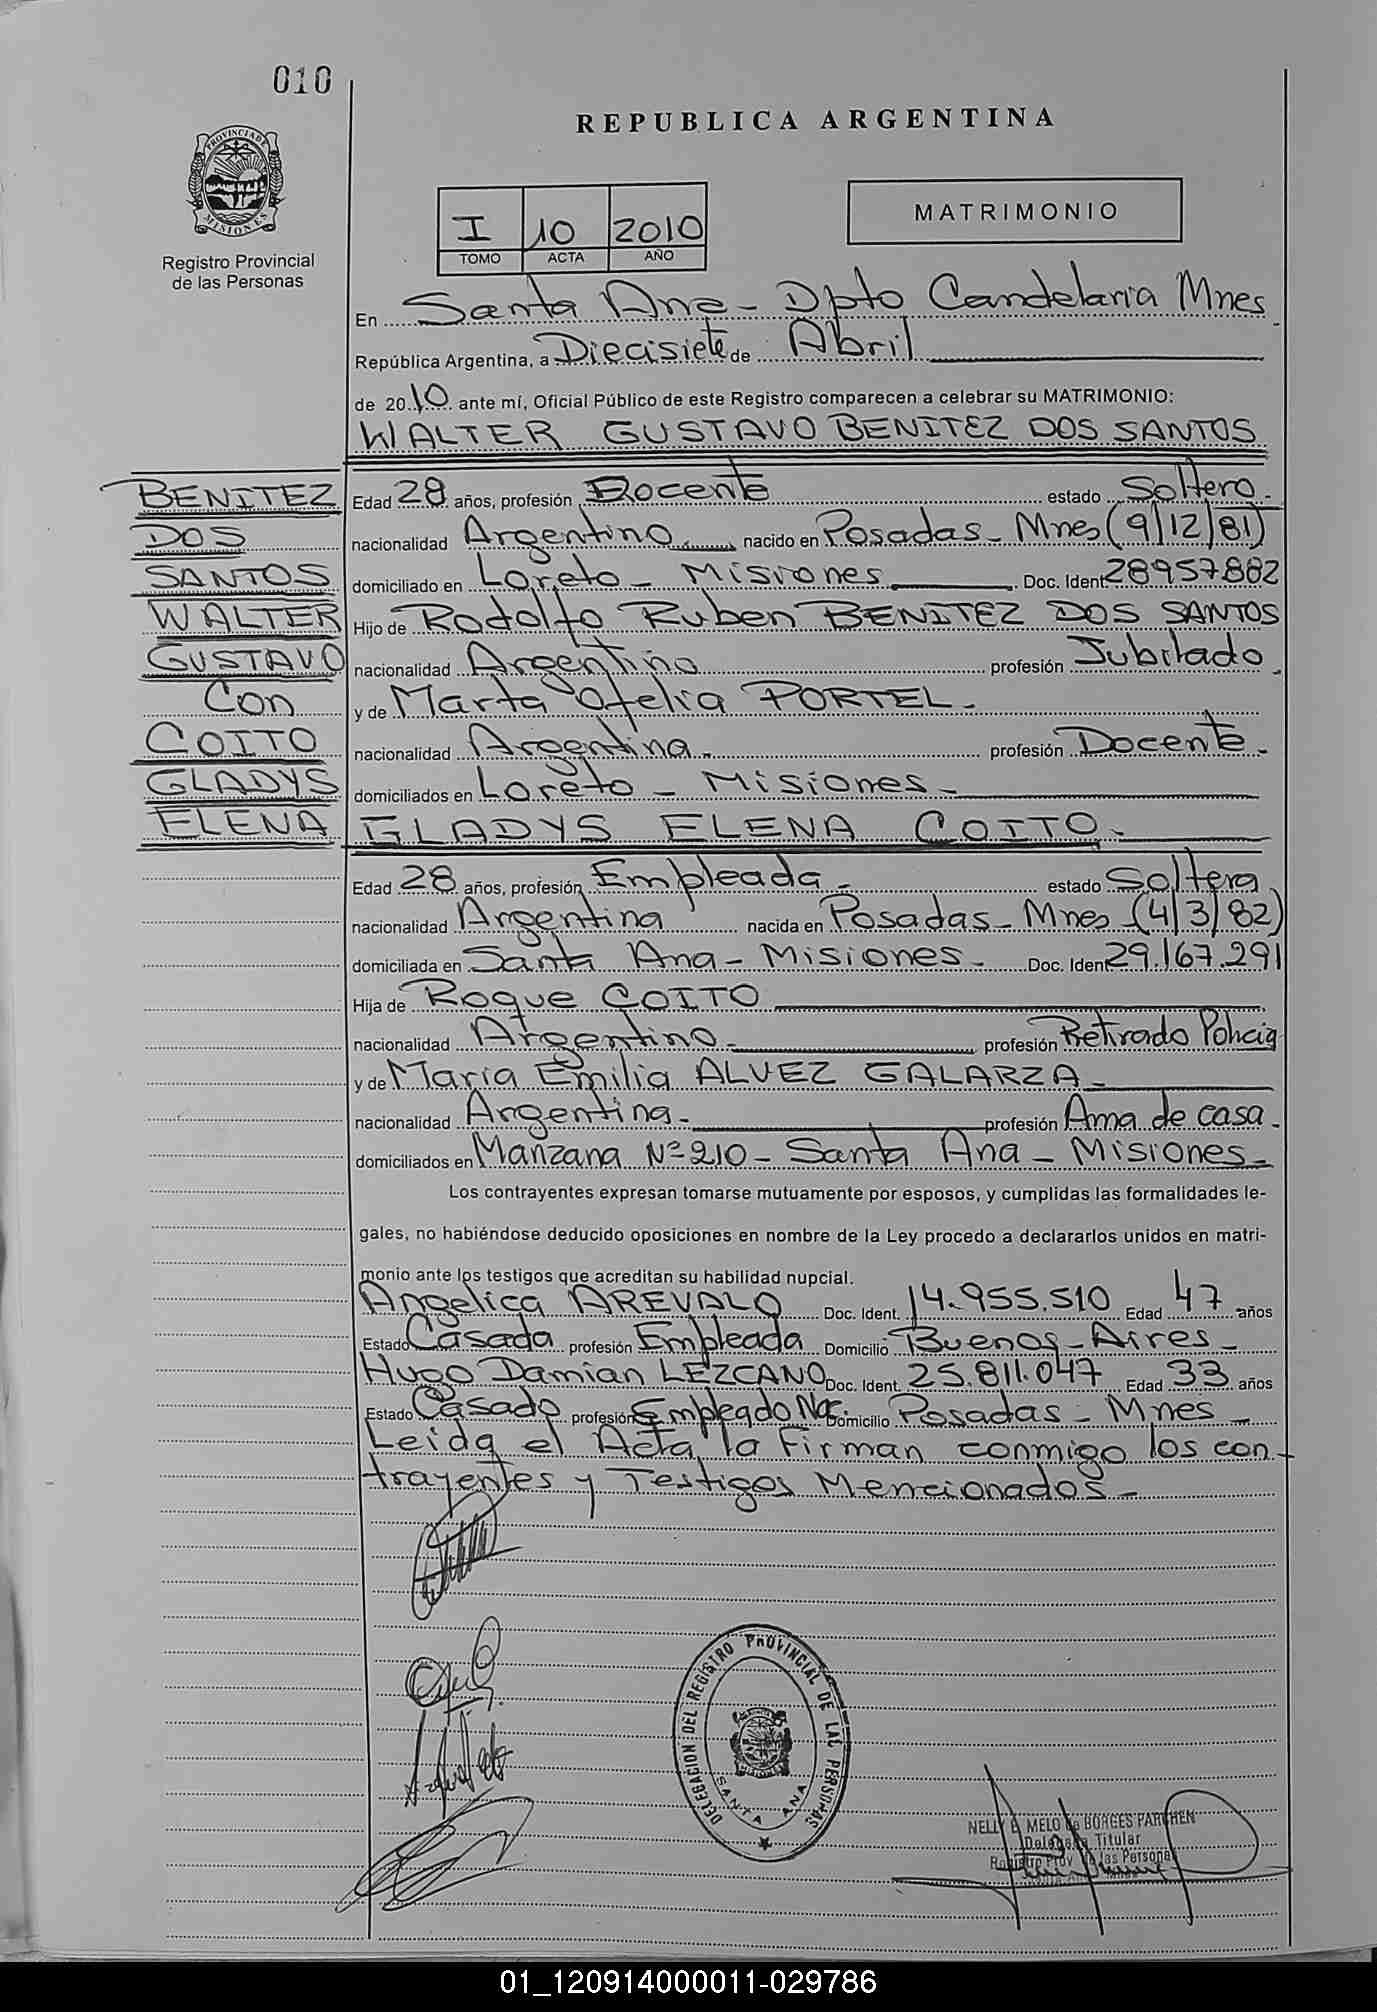 010
REPUBLICA ARGENTINA
PROVINCIA DE
MISIONES
Registro Provincial
de las Personas
I 10 2010
TOMO ACTA AÑO
MATRIMONIO
En Santa Ana - Dpto Candelaria Mnes
República Argentina, a Diecisiete de Abril
de 2010 ante mí, Oficial Público de este Registro comparecen a celebrar su MATRIMONIO:
WALTER GUSTAVO BENITEZ DOS SANTOS
BENITEZ
DOS
SANTOS
WALTER
GUSTAVO
Con
COITO
GLADYS
ELENA
Edad 28 años, profesión Docente estado Soltero.
nacionalidad Argentino nacido en Posadas - Mnes (9/12/81)
domiciliado en Loreto - Misiones Doc. Ident 28957882
Hijo de Rodolfo Ruben BENITEZ DOS SANTOS
nacionalidad Argentino profesión Jubilado
y de Marta Ofelia PORTEL.
nacionalidad Argentina. profesión Docente
domiciliados en Loreto - Misiones -
GLADYS ELENA COITO.
Edad 28 años, profesión Empleada - estado Soltera
nacionalidad Argentina nacida en Posadas - Mnes (4/3/82)
domiciliada en Santa Ana - Misiones - Doc. Ident 29.167.291
Hija de Roque COITO
nacionalidad Argentino profesión Retirado Policia
y de Maria Emilia ALVEZ GALARZA
nacionalidad Argentina - profesión Ama de casa
domiciliados en Manzana Nº 210 - Santa Ana - Misiones -
Los contrayentes expresan tomarse mutuamente por esposos, y cumplidas las formalidades le-
gales, no habiéndose deducido oposiciones en nombre de la Ley procedo a declararlos unidos en matri-
monio ante los testigos que acreditan su habilidad nupcial.
Angelica AREVALO Doc. Ident. 14.955.510 Edad 47 años
Estado Casada profesión Empleada Domicilio Buenos Aires
Hugo Damian LEZCANO Doc. Ident. 25.811.047 Edad 33 años
Estado Casado profesión Empleado Nac. Domicilio Posadas - Mnes
Leida el Acta la Firman conmigo los con-
trayentes y Testigos Mencionados -
DELEGACION DEL REGISTRO PROVINCIAL DE LAL PERSONAS
SANTA ANA
NELLY E. MELO de BORGES PARCHEN
Delegada Titular
Registro Prov de las Personas
01_120914000011-029786